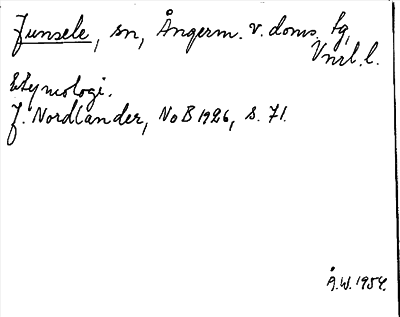 Junsele, sn, Ångerm. v. doms. fg,
Vnrl. l.
Etymologi.
J. Nordlander, NoB 1926, s. 71.
Å.W. 1954.